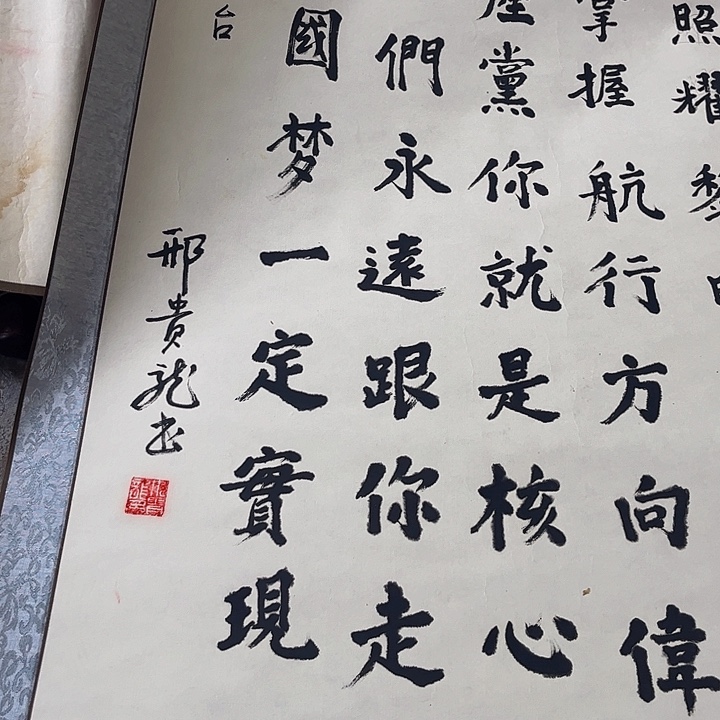 照耀黎
掌握航行方向偉
產黨你就是核心
們永遠跟你走
國梦一定實現
台
邢貴龍书